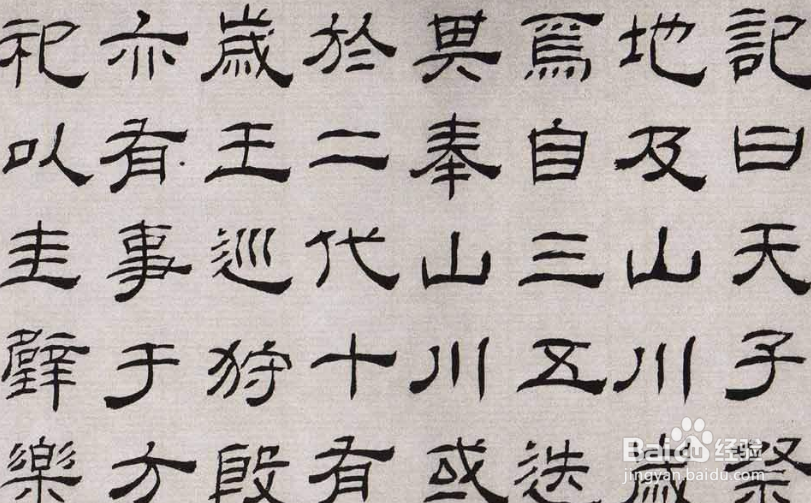 記曰天子祭
地及山川歲
焉自三五迭
其奉山川或
於二代十有
歲王巡狩殷
亦有事于方
祀以圭璧樂
Baidu 经验
jingyan.baidu.com